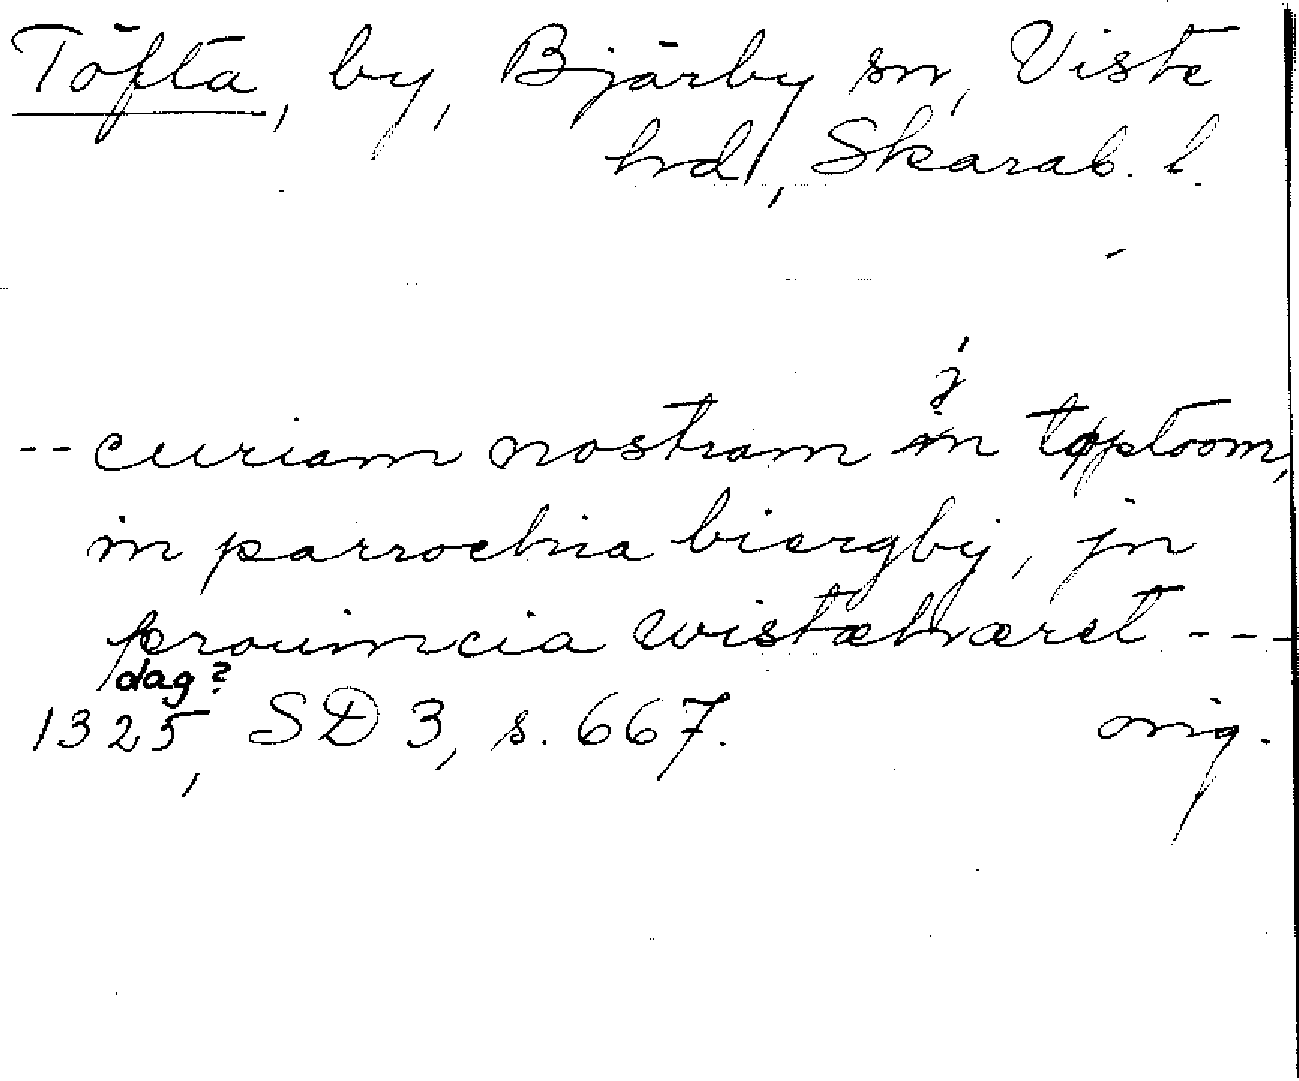 Töfta, by, Bjärby sn, Viste
hrd, Skarab. l.
j
-- curiam nostram in tøptoom,
in parrochia biærgby, jn
prouincia wistæhæret ---
dag?
1325, SD 3, s. 667. orig.